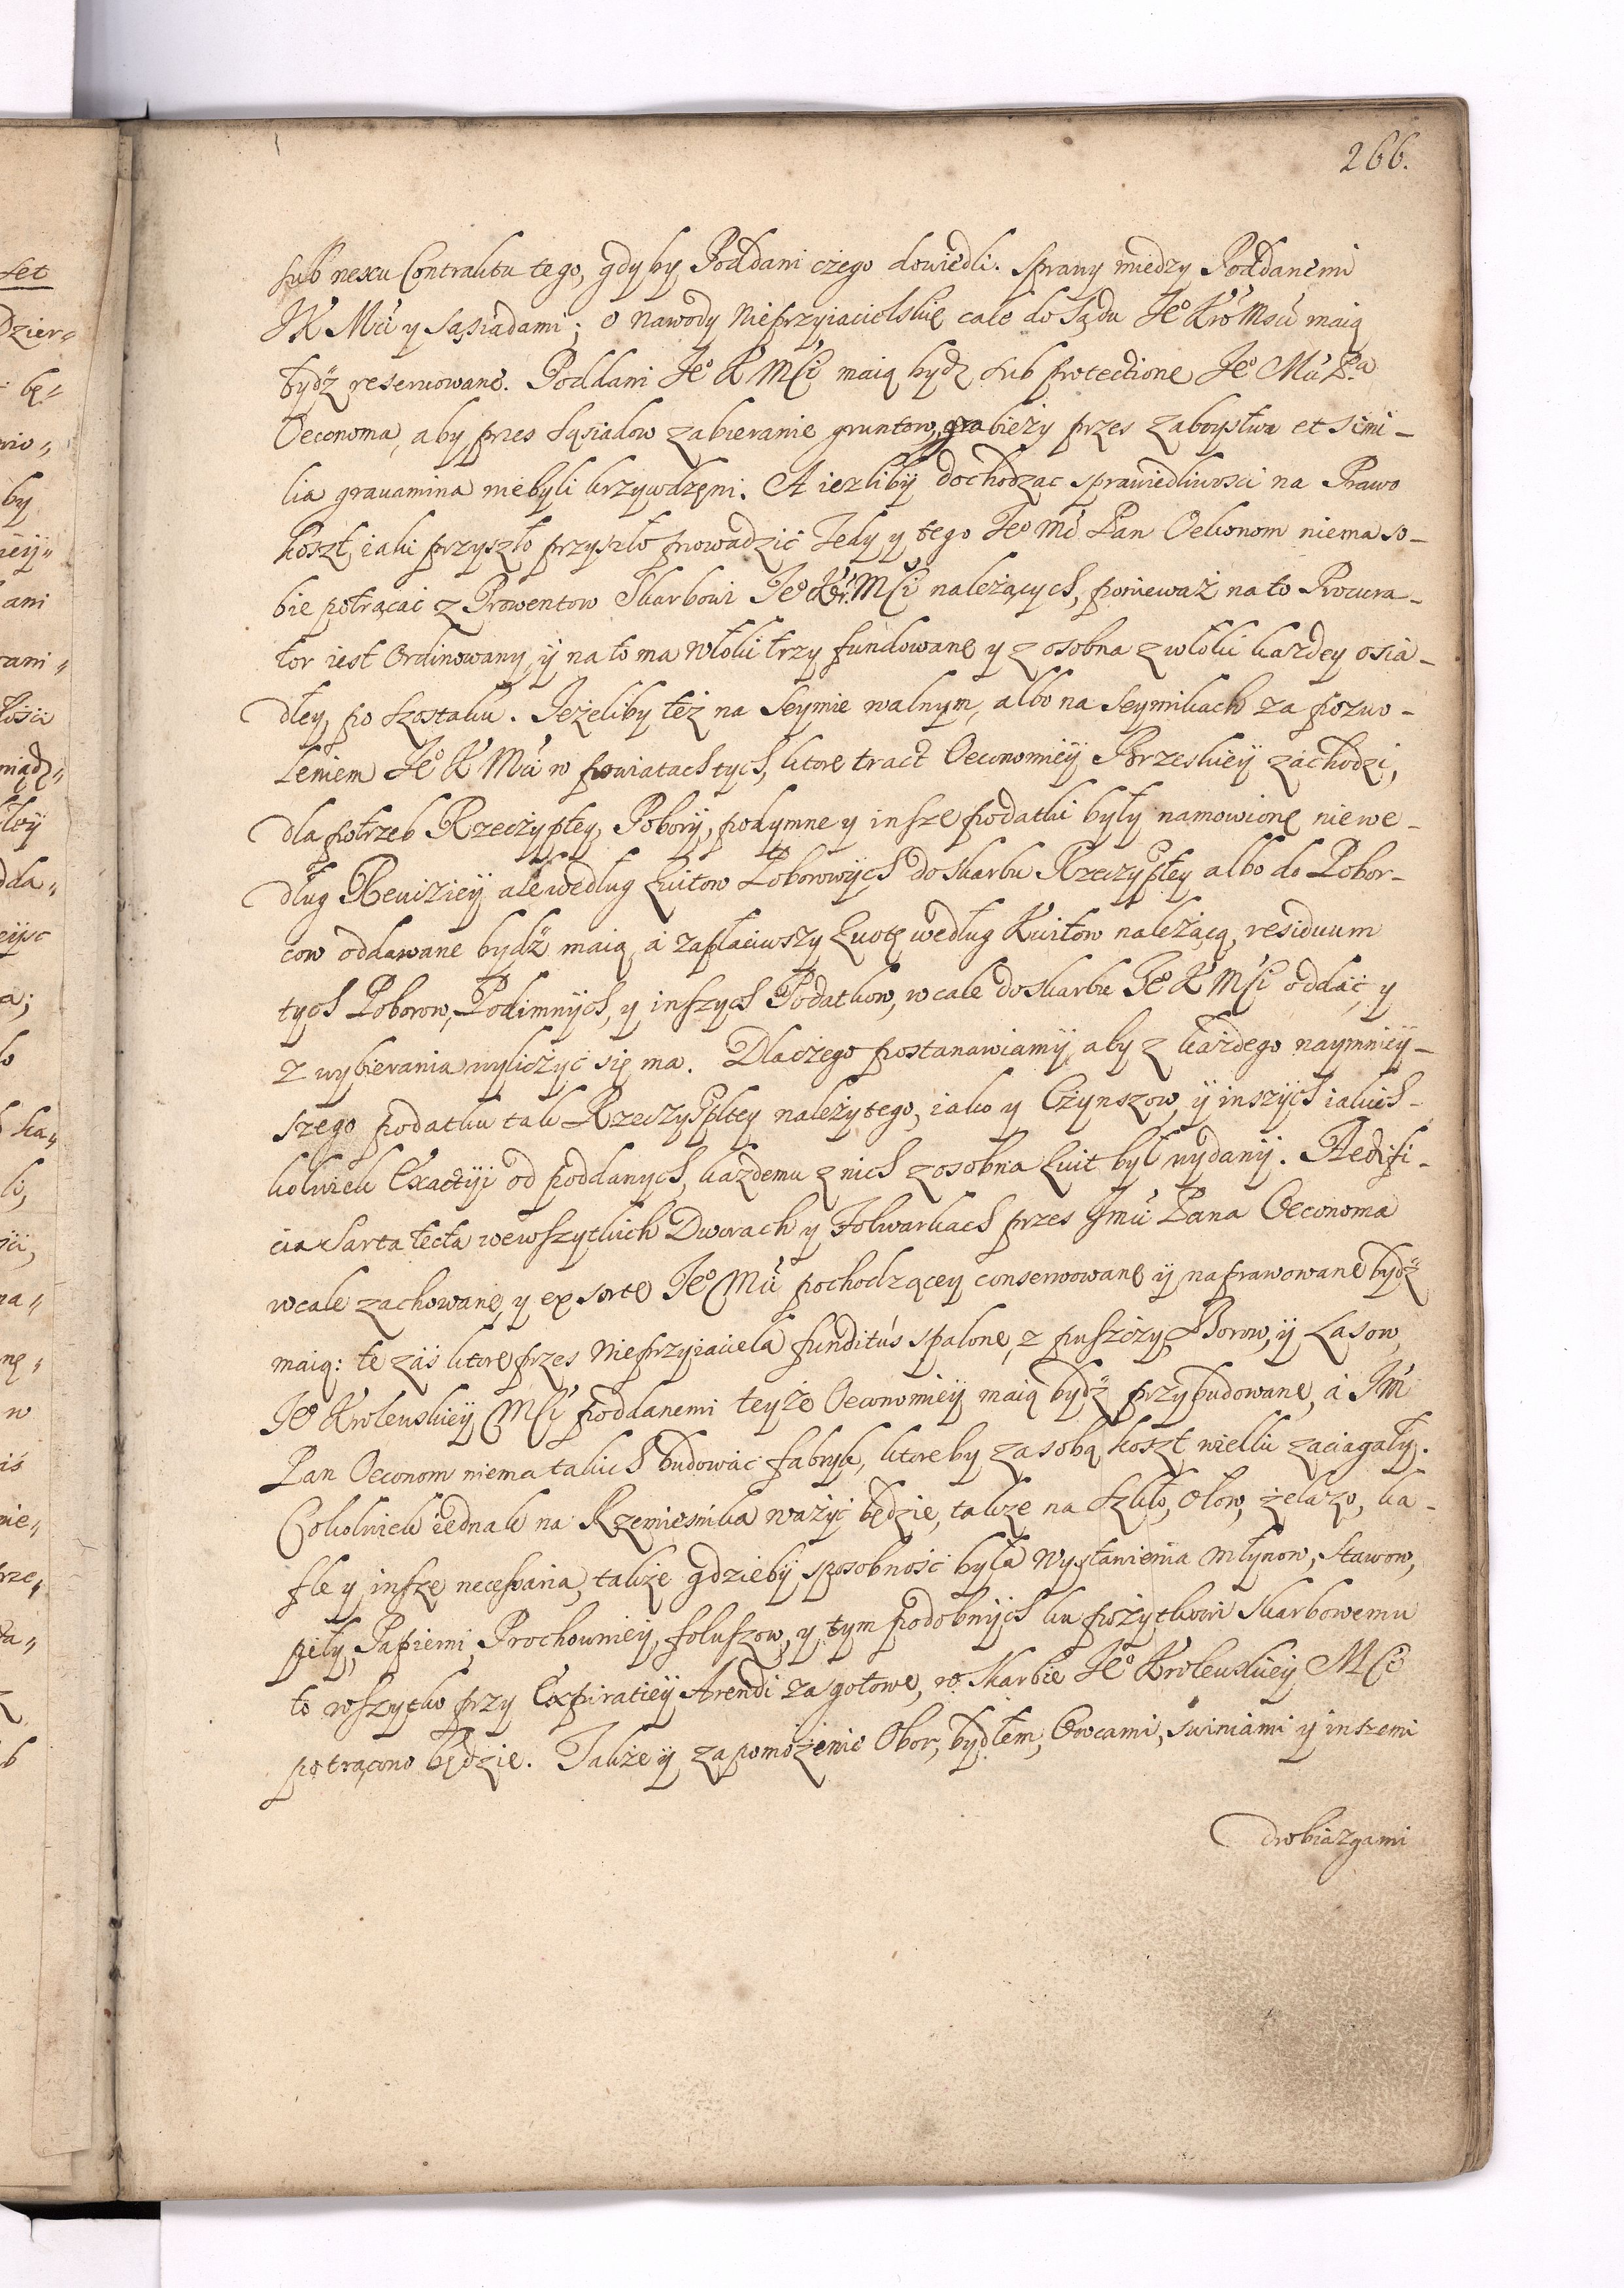 266.
sub nexu Contraktu tego, gdyby Poddani czego dowiedli. Sprawy miedzy Poddanemi
JK Mci y Sąsiadami; o Nawody Nieprzyiacielskie całe do Sądu Je° Kro Mści maią
bydź reserwowane. Poddani Je° K MCi maią bydz sub protectione Je° Mci P.ª
Oeconoma, aby przes Sąsiadow zabieranie gruntow, grabieży przes zaboystwa et simi-
lia gravamina niebyli krzywdzęni. A iezlibÿ dochodząc sprawiedliwosci na Prawo
koszt iaki przyszło przyszło prowadzić Tedy y tego Je° Mć Pan Oekonom niema so-
bie potrącać z Prowentow Skarbowi Je° Kr. MCi należących, ponieważ na to Procura-
tor iest Ordinowany, ÿ na to ma Włoki trzy fundowane y z osobna z włoki każdey osia-
dłey, po szostaku. Jeżeliby też na Seymie walnym, albo na Seymikach za pozwo-
leniem Je° K Mci w powiatach tych, ktore tract Oeconomiey Brzeskieÿ zachodzi,
dla potrzeb Rzeczyptey, Poborÿ, podymne y insze podatki były namowionę niewe-
dług Reviziey ale według kwitow Poborowÿch do skarbu Rzeczyptey albo do Pobor-
cow oddawane bydź maią, á zapłaciwszy kwotę według Kwitow należącą, residuum
tych Poborow, Podimnÿch, y inszych Podatkow, wcale do Skarbu Je° K MCi oddáć, y
z wybierania wyliczyć się ma. Dlaczego postanawiamÿ, aby z każdego naymnieÿ-
szego podatku tak Rzeczyplitey należytego, iako y Czynszow, ÿ inszÿch iakich-
kolwiek Exactÿi od poddanych, każdemu z nich z osobna kwit był wydanÿ. Aedifi-
cia Sarta tecta wewszytkich Dworach y Folwarkach przes Jmci Pana Oeconoma
wcale zachowane, y ex sorte Je° Mci pochodzącey conserwowanę ÿ naprawowane bydź
maią: te záś ktore przes Nieprzyiaciela funditús spalonę, z puszczy, Borow, ÿ Lasow,
Je° Krolewskieÿ MCi poddanemi teyże Oeconomieÿ maią bydź przybudowanę, á Jm
Pan Oeconom niema takich budowáć fabryk, ktoreby za sobą koszt wielki zaciągały.
Cokolwiek iednak na Rzemieśnika ważyć będzie, także na szkło, ołow, żelazo, ka-
fle y insze necessaria, także gdziebÿ sposobność była wystawienia młynow, stawow,
piły, Papierni, Prochowniey, foluszow, y tym podobnÿch ku pożytkowi Skarbowemu
to wszytko przy Expiratieÿ Arendi za gotowe, w Skarbie Je° Krolewskieÿ MCi
potrącono będzie. Także ÿ zapomożenie Obor, bydłem, Owcami, swiniami y inszemi
drobiazgami